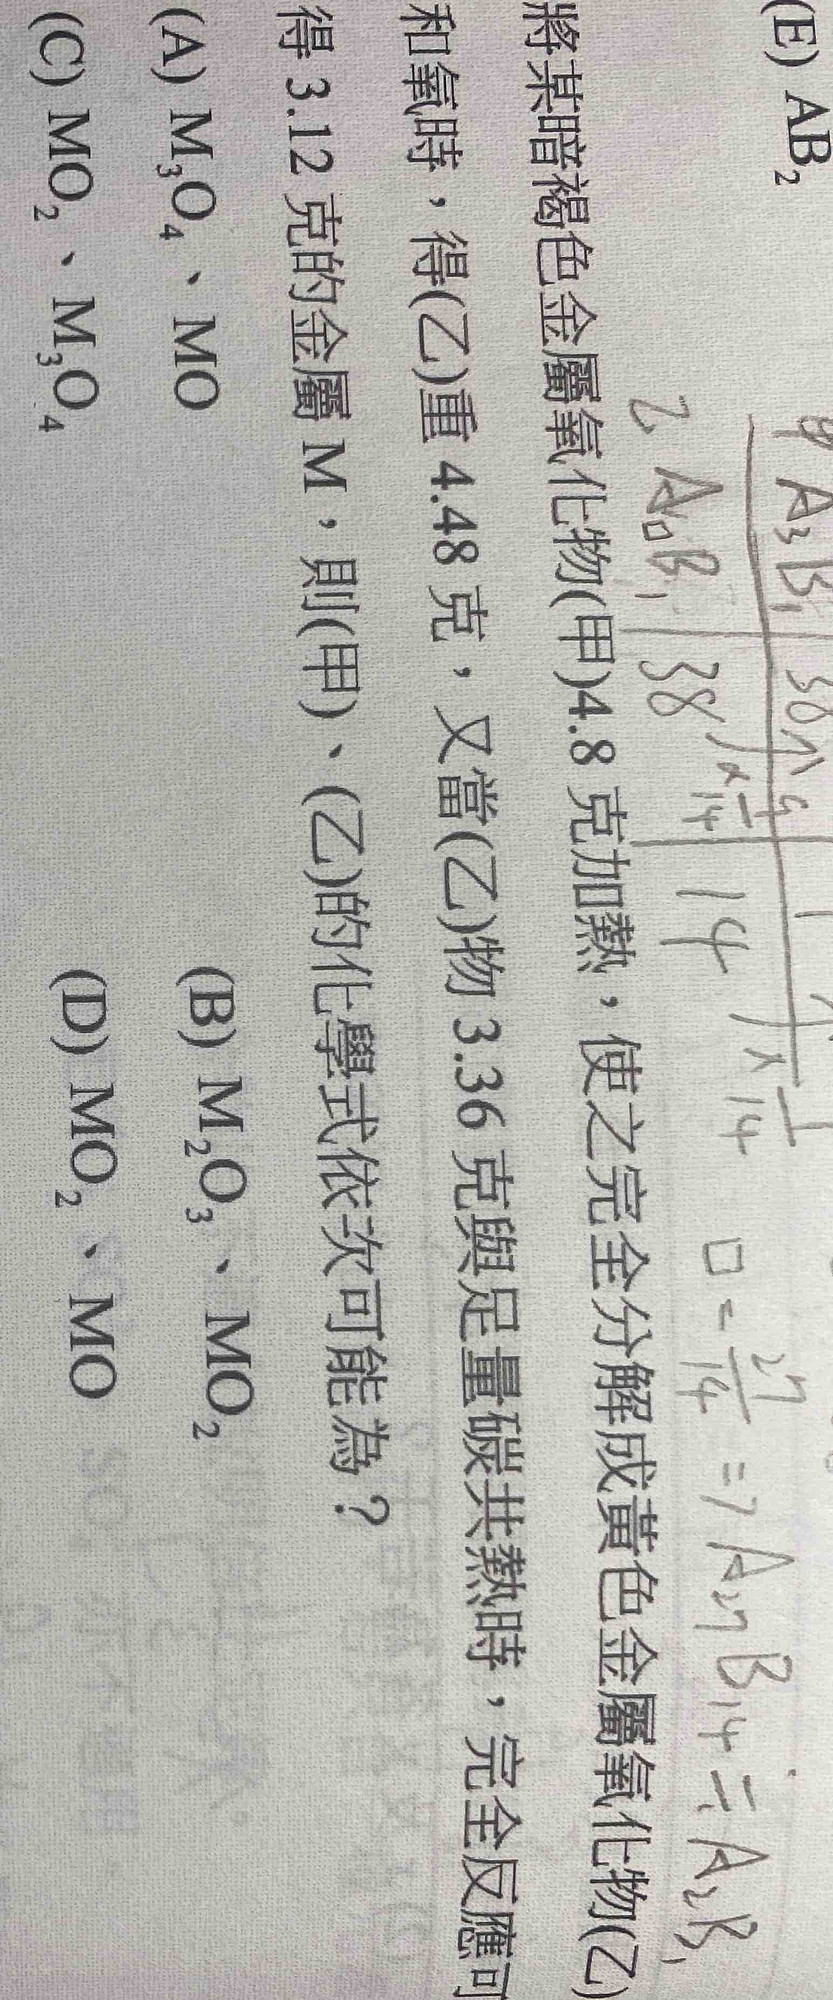 (E) AB₂
甲 A₃B₁
乙 A□B₁ 38 × 1/14 14 × 1/14 □ = 27/14 ⇒ A₂₇B₁₄ = A₂B₁
將某暗褐色金屬氧化物(甲)4.8 克加熱，使之完全分解成黃色金屬氧化物(乙)
和氧時，得(乙)重 4.48 克，又當(乙)物 3.36 克與足量碳共熱時，完全反應可
得 3.12 克的金屬 M，則(甲)、(乙)的化學式依次可能為？
(A) M₃O₄、MO (B) M₂O₃、MO₂
(C) MO₂、M₃O₄ (D) MO₂、MO